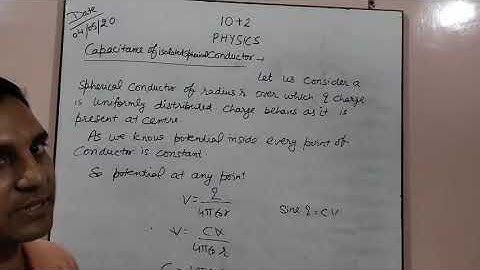 Date
04/05/20
10+2
PHYSICS
Capacitance of isolated spherical Conductor→
Let us consider a
Spherical conductor of radius r over which q charge
is uniformly distributed charge behaves as it is
present at centre.
As we know potential inside every point of
Conductor is constant
So potential at any point
V = q / 4π∈0r
Since q = CV
V = CV / 4π∈0r